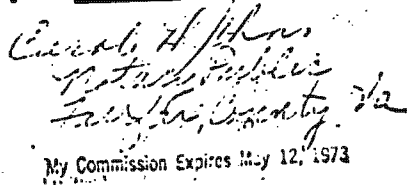 Carol H
Notary Public
County, Va
My Commission Expires May 12, 1973